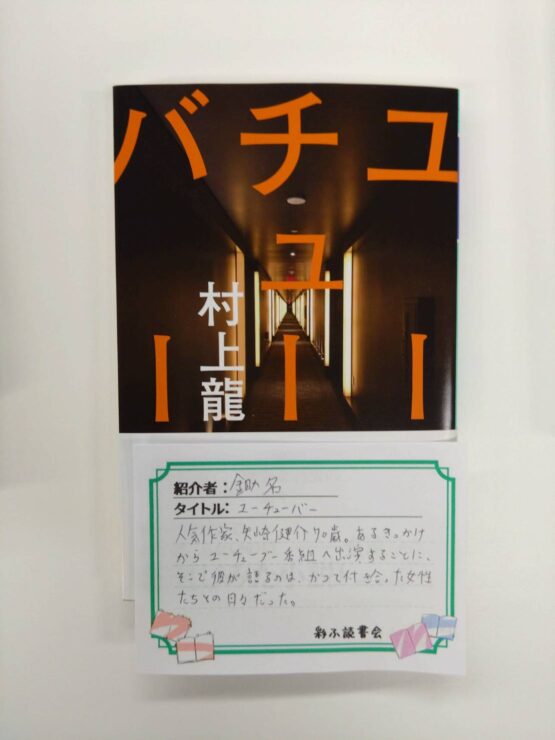 ユー
チュー
バー
村上龍
紹介者：鋤名
タイトル：ユーチューバー
人気作家、矢﨑健介70歳。あるきっかけ
からユーチューブ番組へ出演することに、
そこで彼が語るのは、かつて付き合った女性
たちとの日々だった。
彩ふ読書会